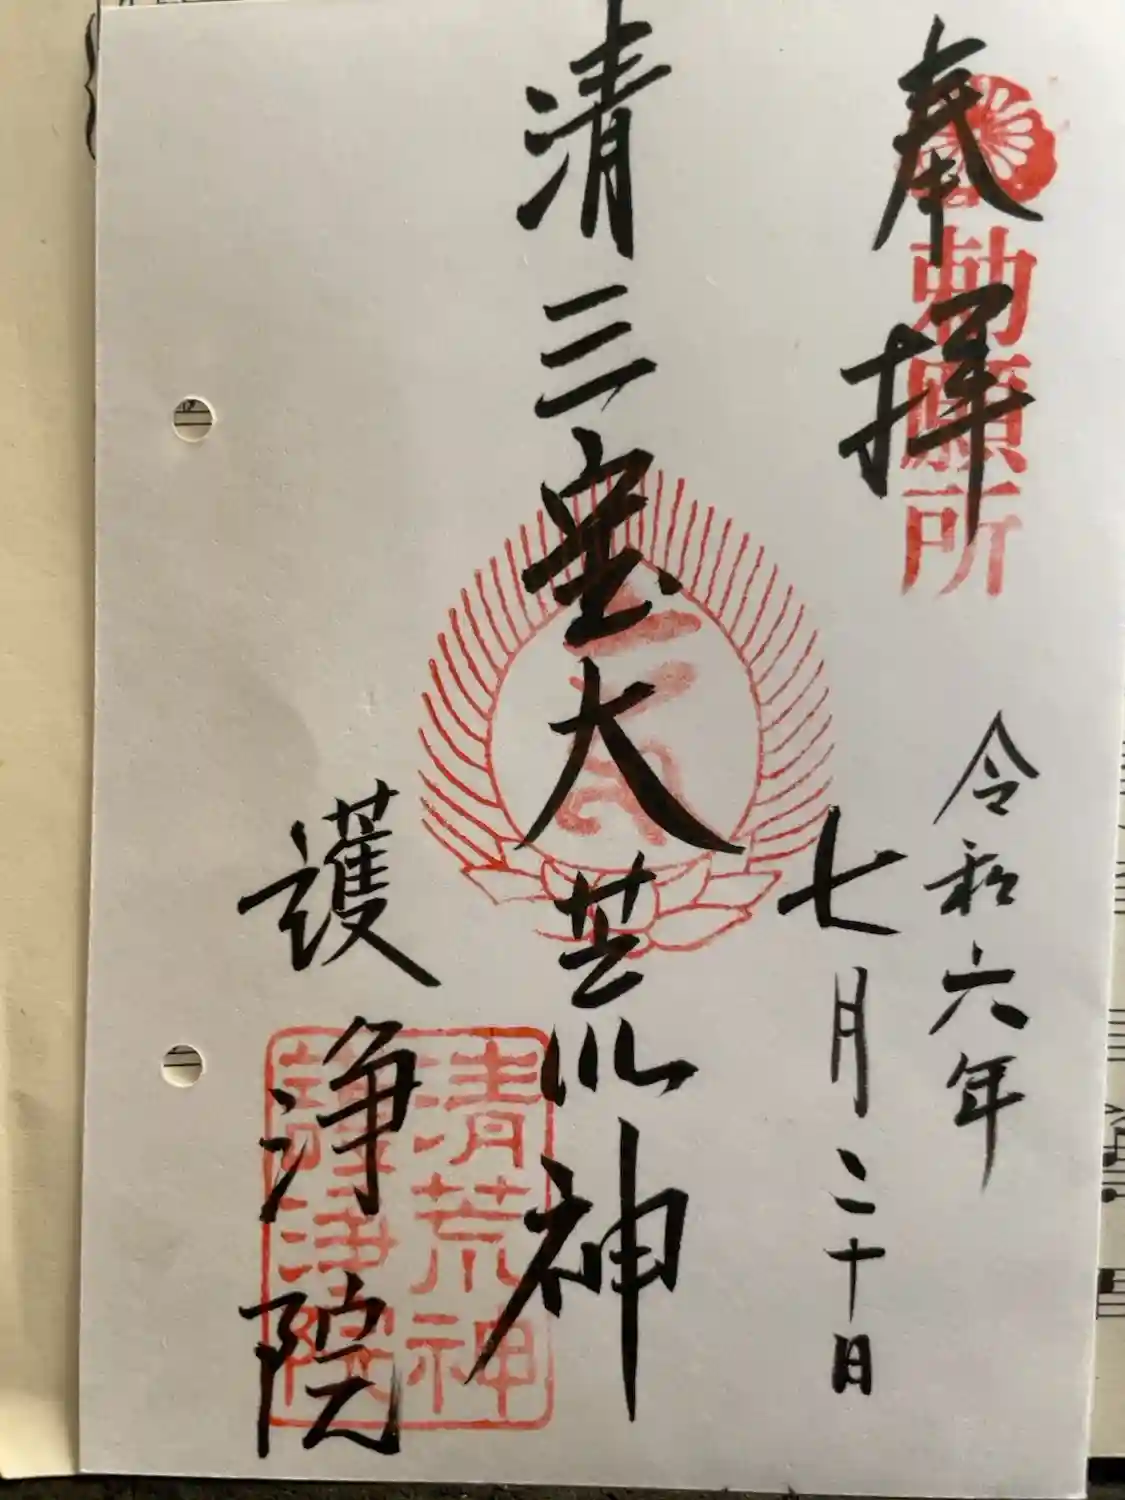 奉拝
勅願所
令和六年
七月二十日
清三宝大荒神
護浄院
清荒神
護浄院